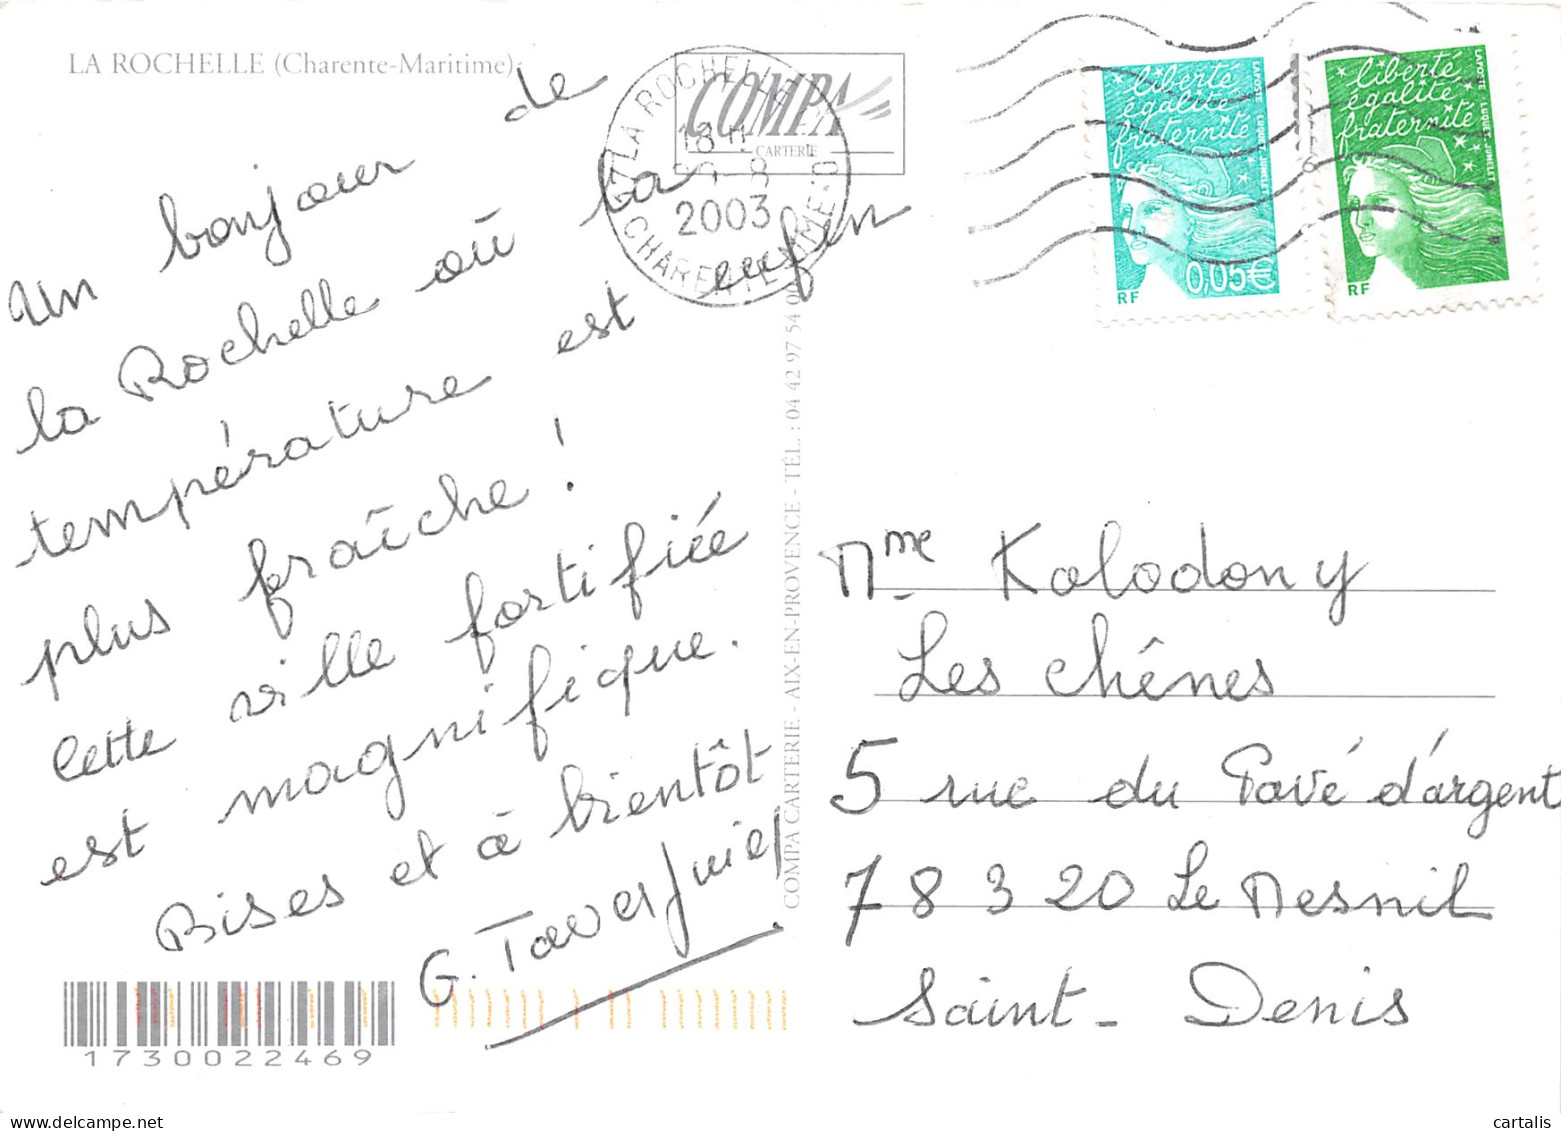 LA ROCHELLE (Charente-Maritime)
COMPA
CARTERIE
17 LA ROCHELLE
18 H
8
2003
CHARENTE-MME
liberté
égalité
fraternité
LA POSTE
LUQUET-JUMELET
RF
0,05€
liberté
égalité
fraternité
LA POSTE
LUQUET-JUMELET
RF
Un bonjour de
la Rochelle où la
température est enfin
plus fraîche !
Cette ville fortifiée
est magnifique.
Bises et à bientôt
G.
COMPA CARTERIE - AIX-EN-PROVENCE - TÉL. : 04 42 97 54 0
Mme Kolodony
Les chênes
5 rue du Pavé d'argent
78320 Le Mesnil
Saint-Denis
1730022469
www.cartalis